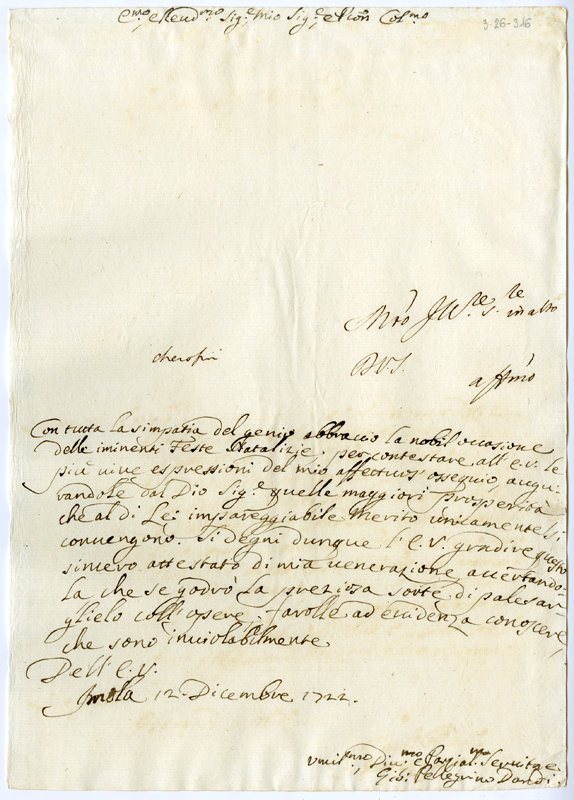 E.mo, e Reud.mo Sig.e mio Sig.e, e Pron Col.mo
3-26-316
Mro Ill.re S.re in alto
D.V.S.
aff.mo
Con tutta la simpatia del genio abbraccio la nobil occasione
delle iminenti Feste Natalizie, per contestare all' E.V. le
più vive espressioni del mio affettuos' ossequio, augu-
randole dal Dio Sig.e quelle maggiori prosperità
che al di Lei impareggiabile Merito unicamente si
convengono. Si degni dunque l' E.V. gradire questo
sincero attestato di mia venerazione, accertando-
La che se godrò la preziosa sorte di palesar
glielo coll' opere, farolle ad evidenza conoscere,
che sono inviolabilmente
Dell' E.V.
Imola 12. Dicembre 1722.
Umil.mo, Diu.mo e Parzial.mo Seruitore
Gio: Pellegrino Dandi